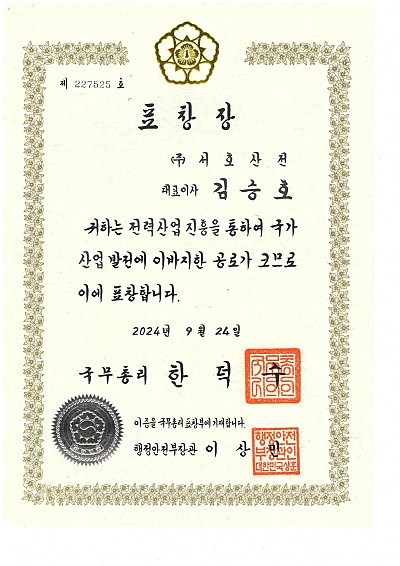 제 227525 호
표 창 장
(주) 서 호 산 전
대표이사 김 승 호
귀하는 전력산업 진흥을 통하여 국가
산업 발전에 이바지한 공로가 크므로
이에 표창합니다.
2024년 9월 24일
국무총리 한 덕 수
이 증을 국무총리표창부에 기재합니다.
행정안전부장관 이 상 민
행정안전
부장관인
대한민국상훈